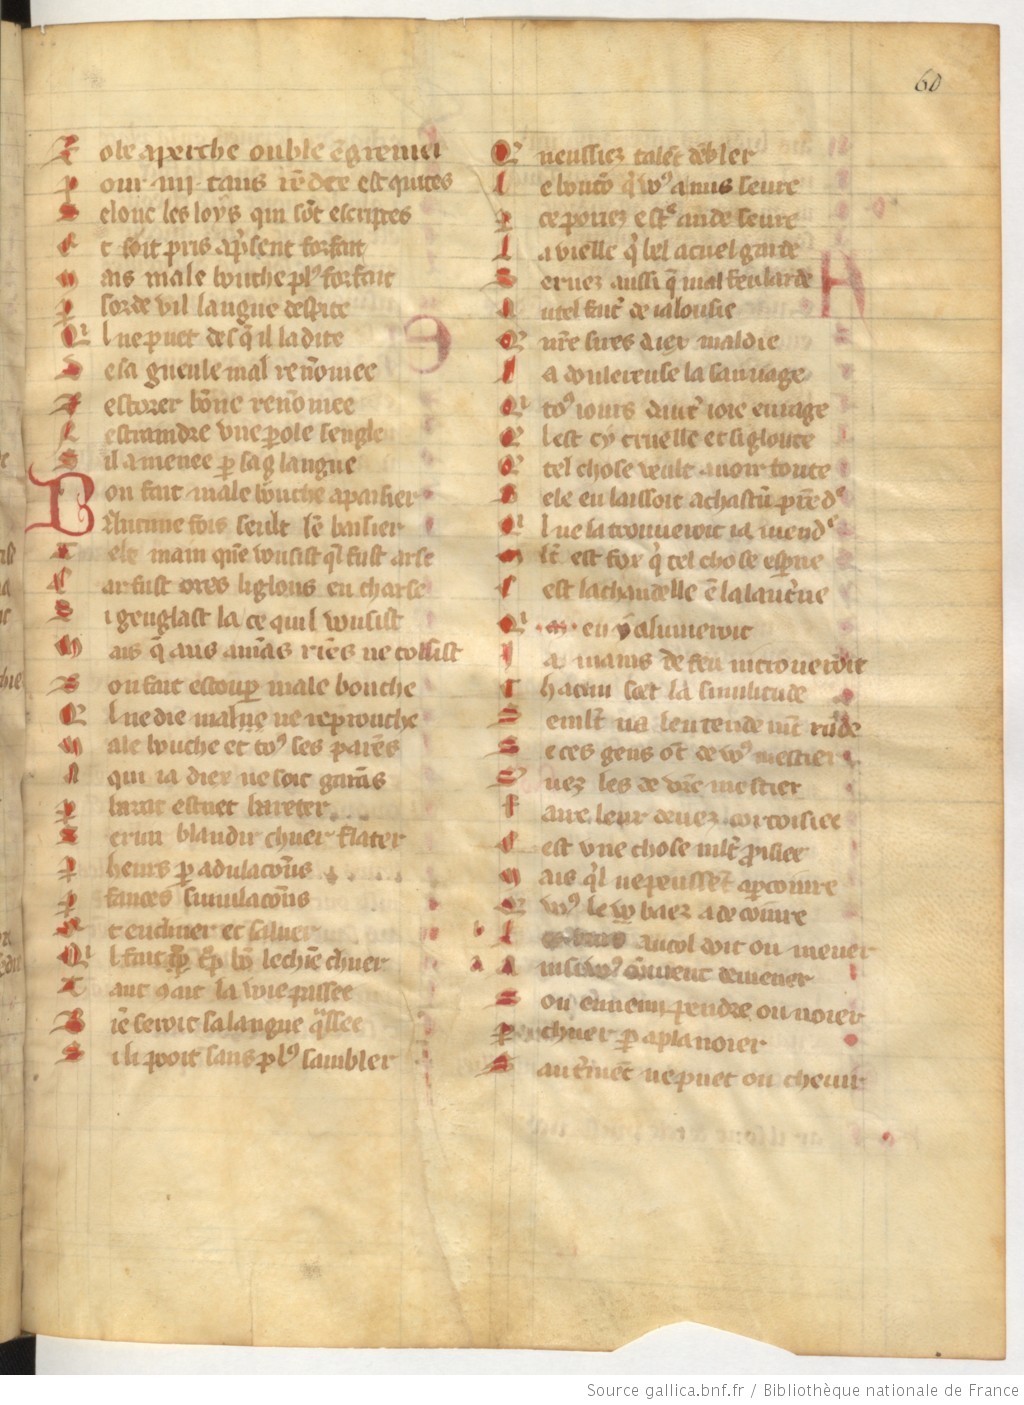 60
Z ole a perche ou ble e͂ grenier
P our .iiii. tans re͂dre est quites
S elonc les loys qui so͂t escriptes
E t soit pris a p̃sent forfait
M ais male bouche pl9 forfait
S orde vil langue despite
Qͥ l ne puet des q͂ il la dite
D e sa gueule mal reno͂mee
R estorer bo͂ne reno͂mee
E straindre vne ꝑole sengle
S il a menee ꝑ sa glangue
B on fait male bouche apaisier
A lucune fois seult le͂ baisier
T ele main que͂ vousist q̃l fust arse
C ar fust ores li glous en charse
S i genglast la ce quil vousist
M ais q͂ aus ama͂s rie͂s ne tollist
B on fait estoup̱ male bouche
Q l ne die
M ale bouche et to9 ses pare͂s
A qui ia diex ne soit gara͂s
P barat estuet bareter
S eruir blandir chuer flater
P heurs ꝑ adulaco͂ns
P fauces simulaco͂ns
E t encliner et saluer
Qͥ l fait le chie͂ chuer
T ant qait la voie passee
B ie͂ seroit sa langue q̃ssee
S i li pooit sans pl9 sambler
Q neussiez tale͂t de͂bler
L e bouto͂ q̃ vo9 a mis seure
P ce poriez est͛ au de seure
L a vielle q̃ bel acuel garde
S eruez aussi q͂ mal feu larde
A utel fait͛ de ialousie
Q n͛re sires diex maldie
L a doulereuse la sauuage
Q to9 iours daut͛ ioie enrage
Q lest cy cruelle et si gloute
Q tel chose veult auoir toute
S ele en laissoit a chascu͂ pre͂d͛
Qͥ l ne la trouueroit ia mend͛
M lt͛ est fox q̃ tel chose espne
C est la chandelle e͂ la lant͛ne
Qͥ en y alumeroit
J a mains de feu ni trouueroit
C hacun scet la similitude
S e mlt͛ na lentende me͂t rude
S e ces gens o͂t de vo9 mestier
S uez les de vr͛e mestier
F aire leur deuez cortoisiee
C est vne chose mlt͛ p̃isiee
M ais q̃l ne peussent ap̱coiure
Q vo9 le vo baez a decoiure
L au col doit on mener
A insi vo9 co͂uient demener
S on ennemi pendre ou noier
P chuer ꝑ aplanoier
S aut͛me͂t ne puet on cheuir